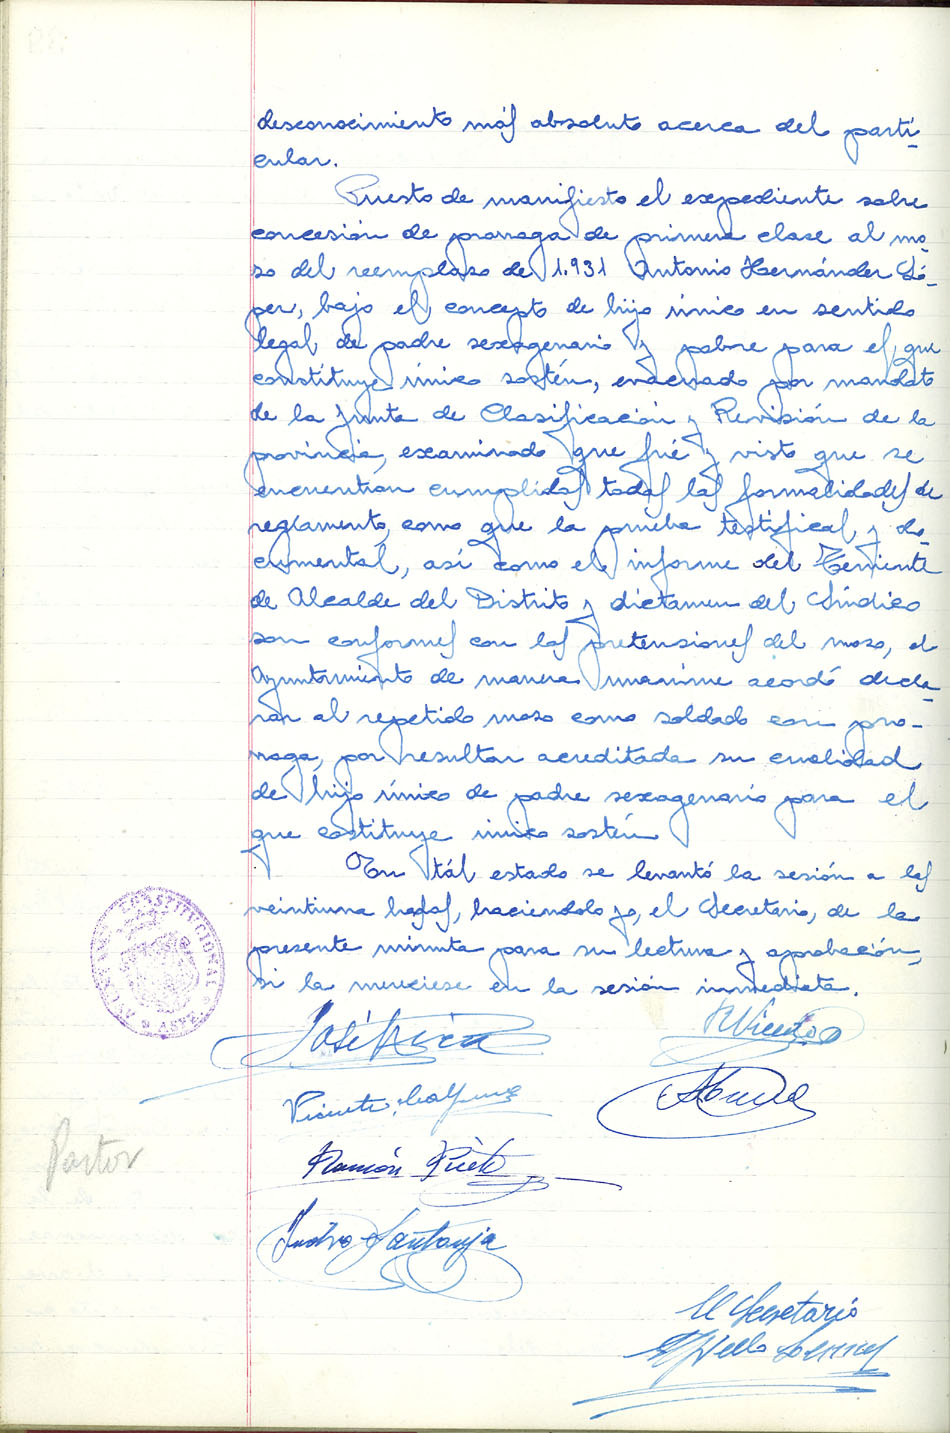 desconocimiento más absoluto acerca del parti-
cular.
Puesto de manifiesto el expediente sobre
concesión de prorroga de primera clase al mo-
zo del reemplazo de 1.931 Antonio Hernández Ló-
pez, bajo el concepto de hijo único en sentido
legal, de padre sexagenario y pobre para el que
constituye único sostén, evacuado por mandato
de la Junta de Clasificación y Revisión de la
provincia, examinado que fué y visto que se
encuentran cumplidas todas las formalidades de
reglamento, como que la prueba testifical y do-
cumental, así como el informe del Teniente
de Alcalde del Distrito y dictamen del Síndico
son conformes con las pretensiones del mozo, el
Ayuntamiento de manera unanime acordó decla-
rar al repetido mozo como soldado con pro-
rroga, por resultar acreditada su cualidad
de hijo único de padre sexagenario para el
que costituye único sostén
En tál estado se levantó la sesión a las
veintiuna horas, haciendolo yo, el Secretario, de la
presente minuta para su lectura y aprobación,
si la mereciese en la sesión inmediata.
CONSTITUCIONAL
ASPE
José
Vicente
Ramón
Pastor
Isidro Santonja
El Secretario